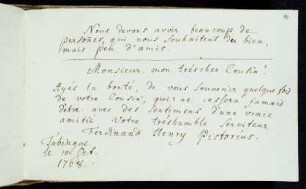 Nous devons avoir beaucoup de
persones, qui nous souhaitent du bien,
mais peu d'amis.
Monsieur, mon trèscher Cousin!
Ayés la bonté, de vous souvenir quelques fois
de votre Cousin, qui ne cessera jamais
d'etre avec des sentimens d'une vraie
amitié Votre trèshumble serviteur
Ferdinand Henry Pistorius.
Tubingue
le 10 Oct.
1768.